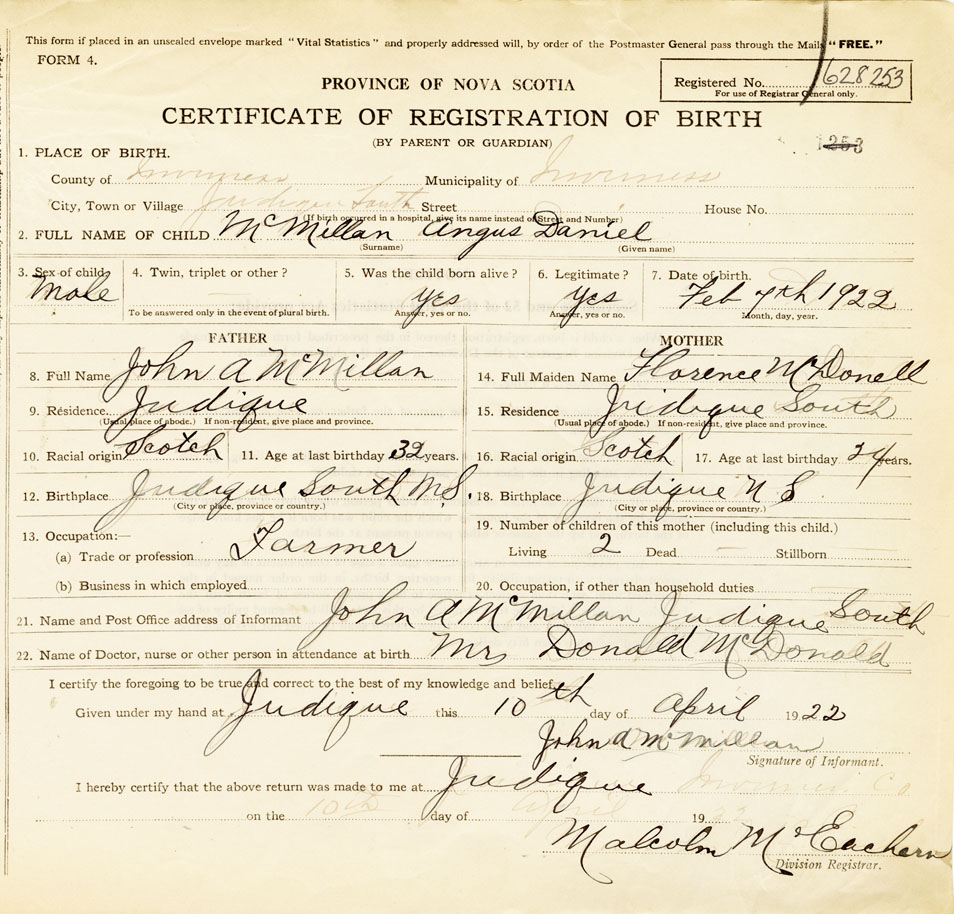 This form if placed in an unsealed envelope marked "Vital Statistics" and properly addressed will, by order of the Postmaster General pass through the Mails "FREE."
FORM 4.
PROVINCE OF NOVA SCOTIA
Registered No. 628253
For use of Registrar General only.
CERTIFICATE OF REGISTRATION OF BIRTH
(BY PARENT OR GUARDIAN)
1253
1. PLACE OF BIRTH.
County of Inverness Municipality of Inverness
City, Town or Village Judique South Street House No.
(If birth occurred in a hospital, give its name instead of Street and Number)
2. FULL NAME OF CHILD McMillan Angus Daniel
(Surname) (Given name)
3. Sex of child 4. Twin, triplet or other? 5. Was the child born alive? 6. Legitimate? 7. Date of birth.
Male Yes Yes Feb 7th 1922
To be answered only in the event of plural birth. Answer, yes or no. Answer, yes or no. Month, day, year.
FATHER MOTHER
8. Full Name John A McMillan 14. Full Maiden Name Florence McDonell
9. Residence. Judique 15. Residence Judique South
(Usual place of abode.) If non-resident, give place and province. (Usual place of abode.) If non-resident, give place and province.
10. Racial origin Scotch 11. Age at last birthday 32 years. 16. Racial origin Scotch 17. Age at last birthday 24 years.
12. Birthplace Judique South N.S. 18. Birthplace Judique N S
(City or place, province or country.) (City or place, province or country.)
13. Occupation:— 19. Number of children of this mother (including this child.)
(a) Trade or profession Farmer Living 2 Dead — Stillborn —
(b) Business in which employed 20. Occupation, if other than household duties
21. Name and Post Office address of Informant John A McMillan Judique South
22. Name of Doctor, nurse or other person in attendance at birth Mrs Donald McDonald
I certify the foregoing to be true and correct to the best of my knowledge and belief.
Given under my hand at Judique this 10th day of April 1922
John A McMillan
Signature of Informant.
I hereby certify that the above return was made to me at Judique Inverness Co
on the 10th day of April 1922
Malcolm McEachern
Division Registrar.